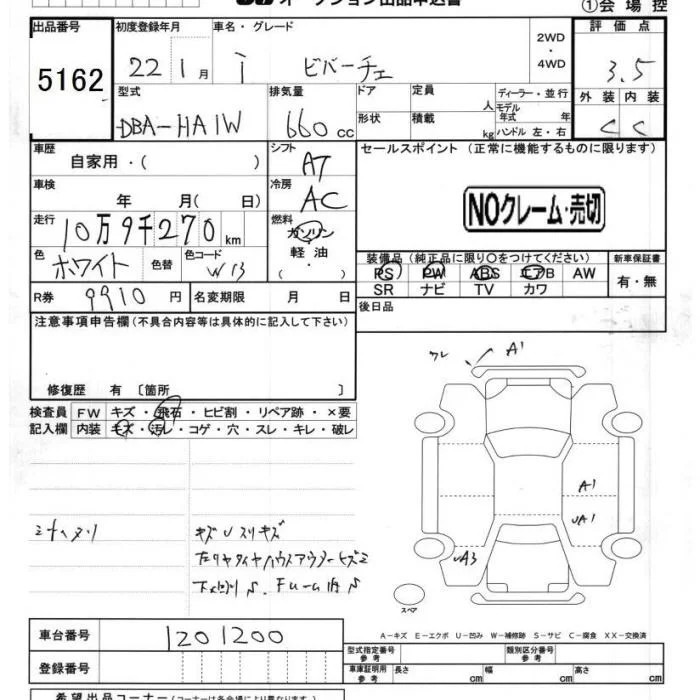 ①会場控
出品番号 初度登録年月 車名・グレード 2WD・4WD 評価点
5162 22 1月 i ビバーチェ 3.5
型式 排気量 ドア 定員 人 ディーラー・並行 モデル 年式 年 外装 内装
DBA-HA1W 660cc 形状 積載 kg ハンドル 左・右 C C
車歴 自家用・( ) シフト AT セールスポイント (正常に機能するものに限ります)
車検 年 月( 日) 冷房 AC
NOクレーム・売切
走行 10万9千270km 燃料 ガソリン 軽油 ・( )
色 ホワイト 色替 色コード W13 装備品(純正品に限り○をつけてください) 新車保証書
PS PW ABS エアB AW 有・無
SR ナビ TV カワ
R券 9910円 名変期限 月 日 後日品
注意事項申告欄(不具合内容等は具体的に記入して下さい)
修復歴 有〔箇所 〕
ワレ A1
検査員 FW キズ・飛石・ヒビ割・リペア跡・×要
記入欄 内装 キズ・汚レ・コゲ・穴・スレ・キレ・破レ
A1
キズUスリキズ UA1
UA3
スペア
A-キズ E-エクボ U-凹み W-補修跡 S-サビ C-腐食 XX-交換済
車台番号 1201200
登録番号
型式指定番号 参考 類別区分番号 参考
車庫証明用 参考 長さ cm 幅 cm 高さ cm
希望出品コーナー(コーナーは各会場により異なります)